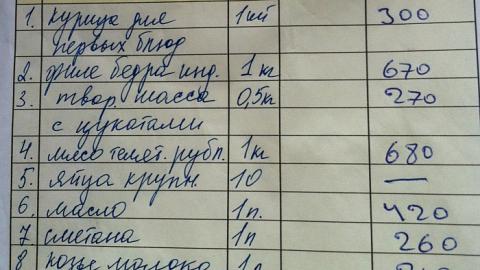 1. курица для 1шт 300
первых блюд
2. филе бедра инд. 1 кг 670
3. твор. масса 0,5кг 270
с цукатами
4. мясо телят. рубл. 1кг 680
5. яйца крупн. 10 —
6. масло 1п. 420
7 сметана 1п 260
8 козье молоко